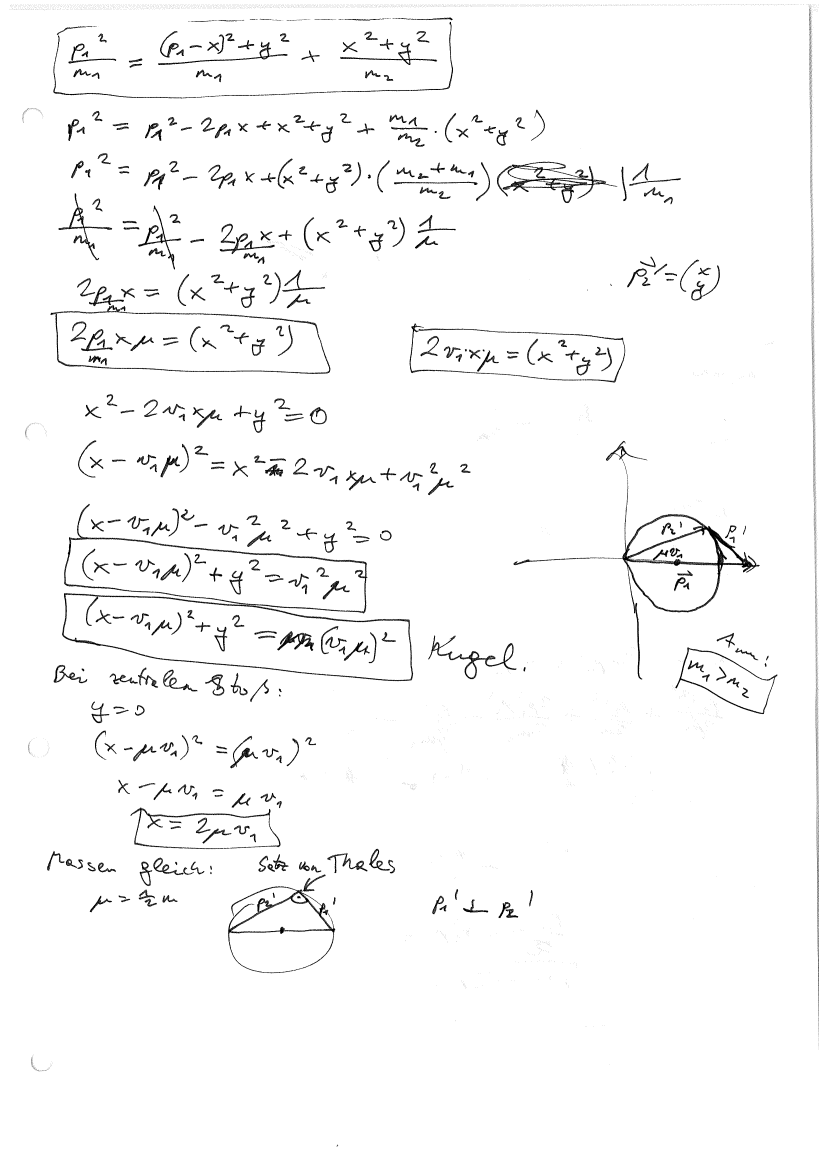 p₁²/m₁ = ((p₁-x)²+y²)/m₁ + (x²+y²)/m₂
p₁² = p₁² - 2p₁x + x²+y² + m₁/m₂ · (x²+y²)
p₁² = p₁² - 2p₁x + (x²+y²) · ((m₂+m₁)/m₂) | 1/m₁
p₁²/m₁ = p₁²/m₁ - 2p₁x/m₁ + (x²+y²) 1/μ
p₂⃗' = (x y)
2p₁/m₁ x = (x²+y²) 1/μ
2p₁/m₁ xμ = (x²+y²)
2v₁·xμ = (x²+y²)
x² - 2v₁xμ + y² = 0
(x - v₁μ)² = x² - 2v₁xμ + v₁²μ²
(x-v₁μ)² - v₁²μ² + y² = 0
(x-v₁μ)² + y² = v₁²μ²
(x-v₁μ)² + y² = (v₁μ)²
Kugel.
p₂'
p₁'
μv₁
p⃗₁
Anm:
m₁>m₂
Bei zentralem Stoß:
y=0
(x-μv₁)² = (μv₁)²
x-μv₁ = μv₁
x = 2μv₁
Massen gleich:
Satz von Thales
μ = ½m
p₂'
p₁'
p₁' ⊥ p₂'